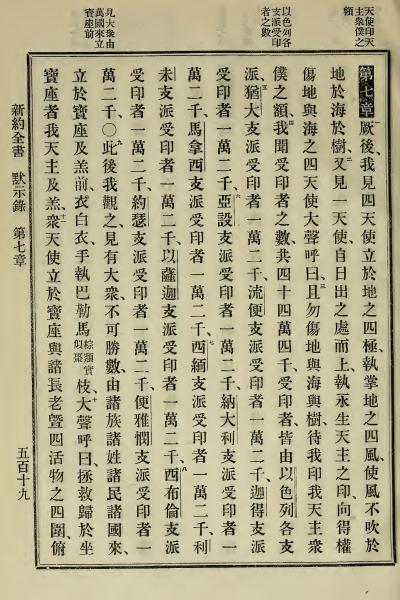 天使印天
主衆僕之
額
以色列各
支派受印
者之數
見大衆由
萬國來立
寶座前
第七章 厥後、我見四天使立於地之四極、執掌地之四風、使風不吹於
地於海於樹、二又見一天使自日出之處而上、執永生天主之印、向得權
傷地與海之四天使大聲呼曰、三且勿傷地與海與樹、待我印我天主衆
僕之額、四我聞受印者之數、共四十四萬四千、受印者、皆由以色列各支
派、五猶大支派受印者一萬二千、流便支派受印者一萬二千、迦得支派
受印者一萬二千、六亞設支派受印者一萬二千、納大利支派受印者一
萬二千、馬拿西支派受印者一萬二千、七西緬支派受印者一萬二千、利
未支派受印者一萬二千、以薩迦支派受印者一萬二千、八西布倫支派
受印者一萬二千、約瑟支派受印者一萬二千、便雅憫支派受印者一
萬二千、○九此後我觀之、見有大衆、不可勝數、由諸族諸姓諸民諸國來、
立於寶座及羔前、衣白衣、手執巴勒馬棕類實似棗枝、十大聲呼曰、拯救歸於坐
寶座者我天主及羔、十一衆天使立於寶座與諸長老曁四活物之四圍、俯
新約全書 默示錄 第七章 五百十九